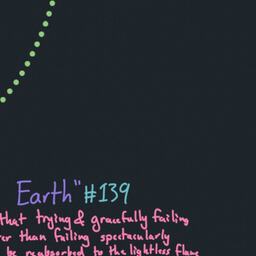 Earth" #139
that trying & gracefully failing
er than failing spectacularly
be reabsorbed to the lightless flame